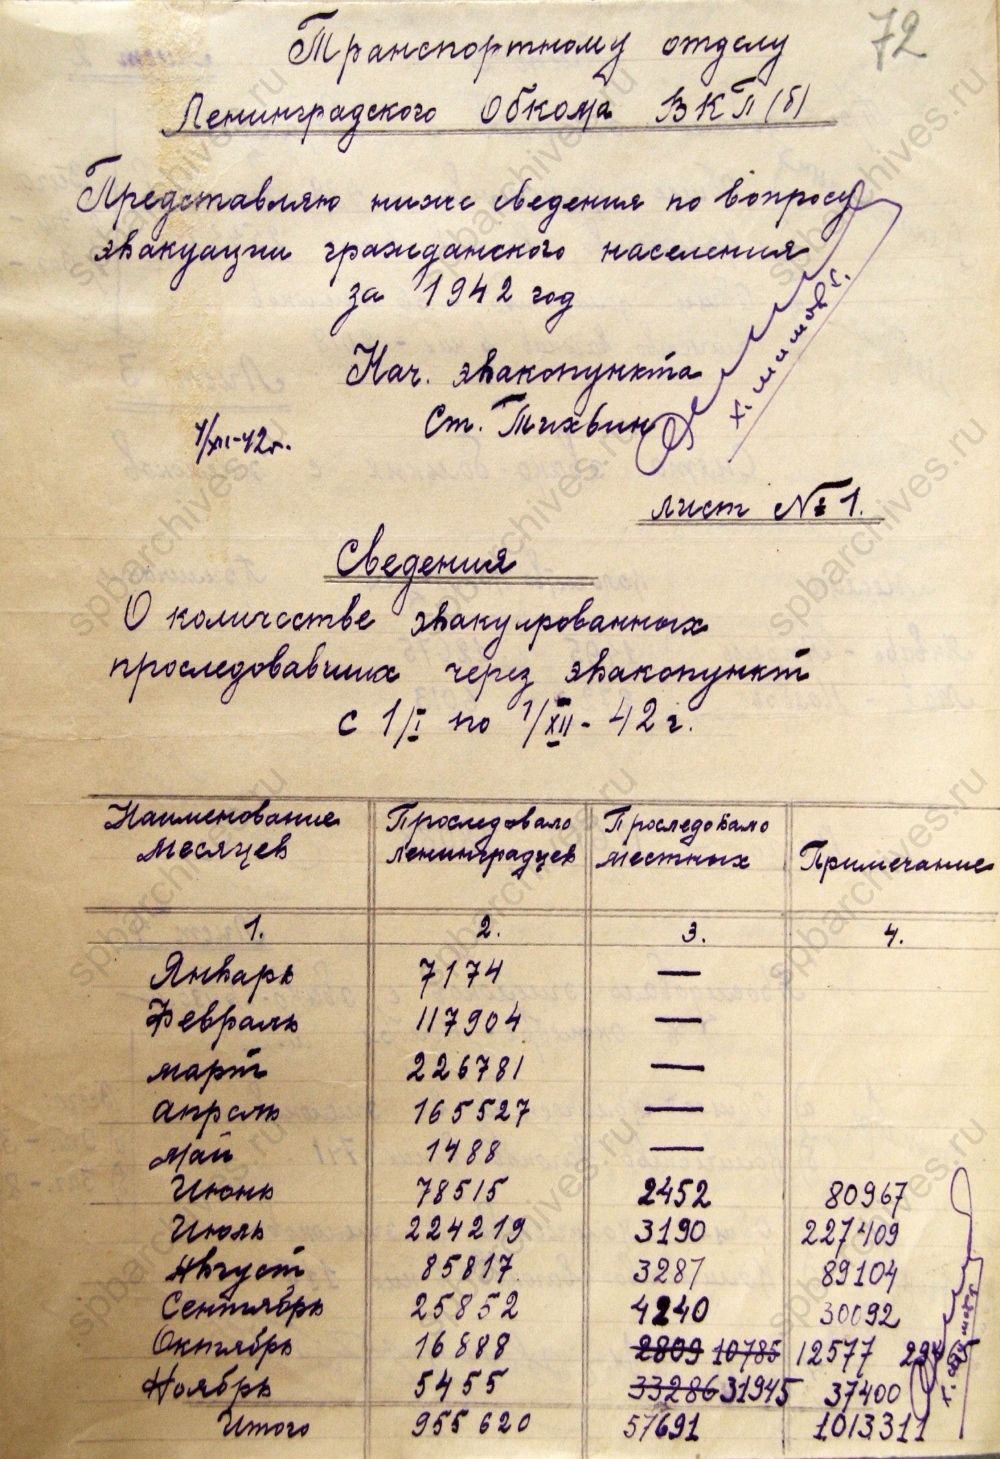 72
Транспортному отделу
Ленинградского Обкома ВКП(б)
Представляю ниже сведения по вопросу
эвакуации гражданского населения
за 1942 год
Нач. эвакопункта
Ст. Тихвин
1/XII-42г.
лист № 1.
Сведения
О количестве эвакуированных
проследовавших через эвакопункт
с 1/I по 1/XII - 42 г.
Наименование месяцев Проследовало Ленинградцев Проследовало местных Примечание
1. 2. 3. 4.
Январь 7174 —
Февраль 117904 —
март 226781 —
апрель 165527 —
май 1488 —
Июнь 78515 2452 80967
Июль 224219 3190 227409
Август 85817 3287 89104
Сентябрь 25852 4240 30092
Октябрь 16888 2809 10785 12577
Ноябрь 5455 33286 31945 37400
Итого 955620 57691 1013311
spbarchives.ru